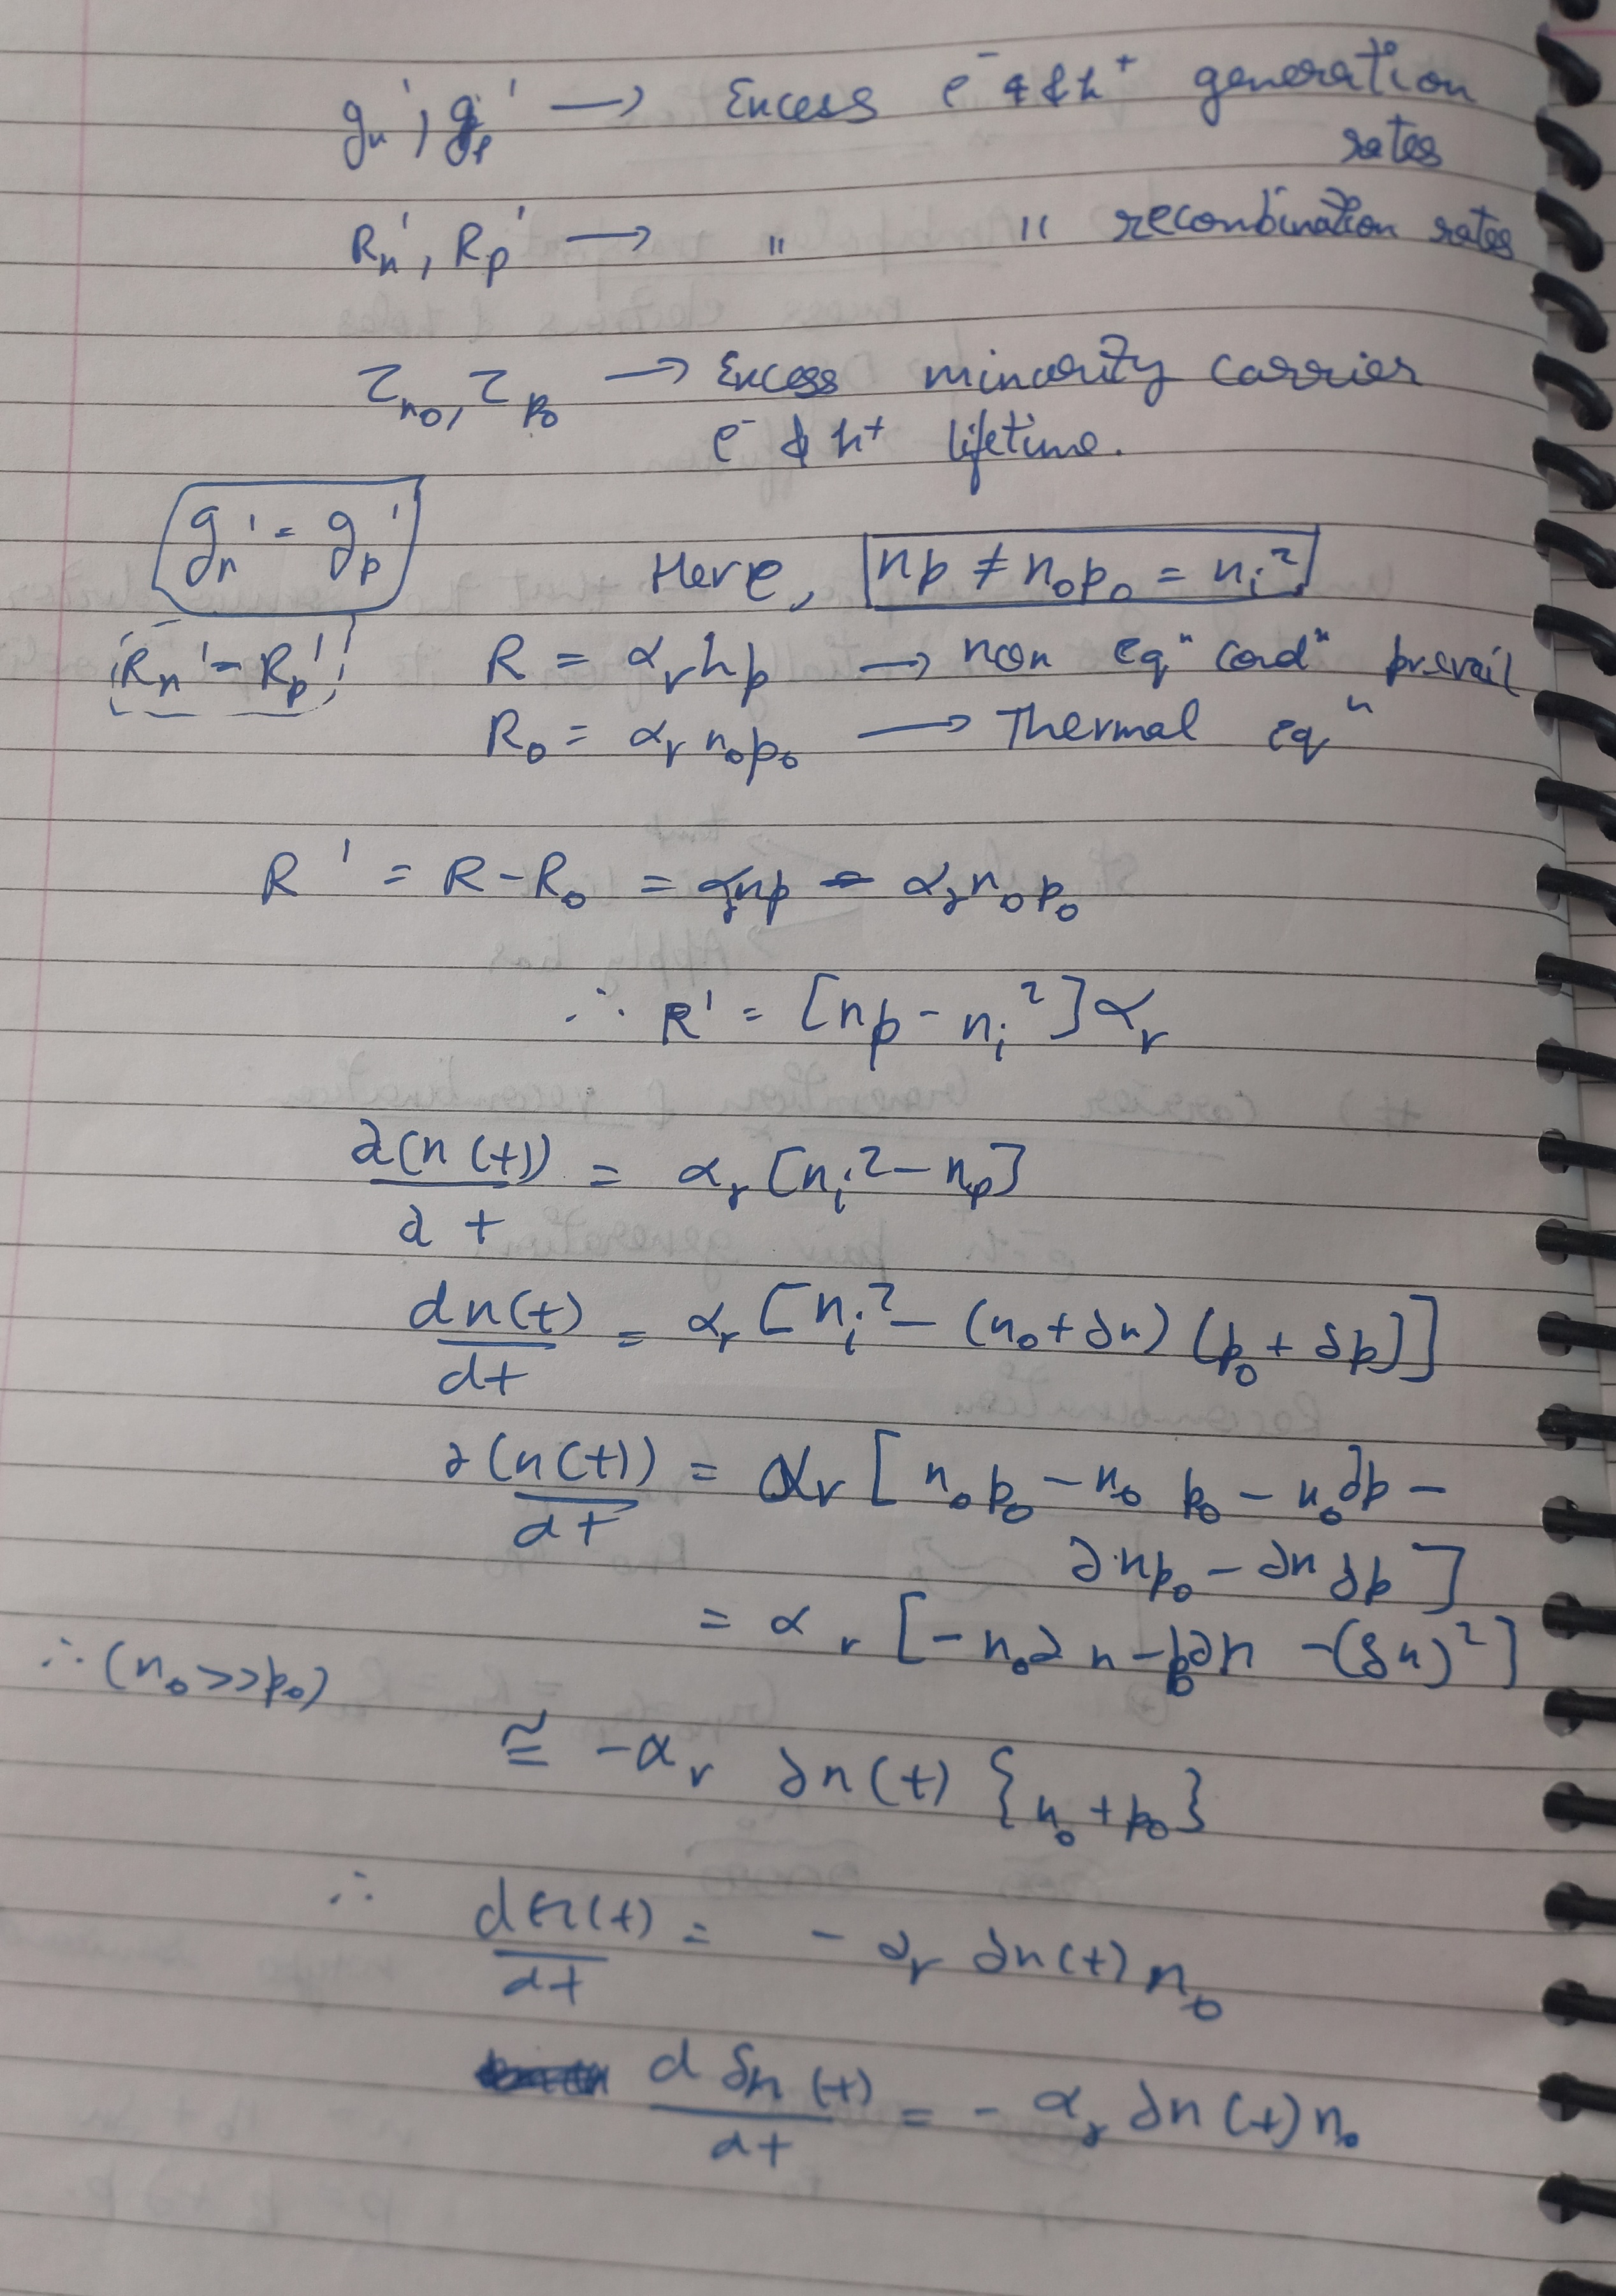 gn', gp' → Excess e⁻ & h⁺ generation
rates
Rn', Rp' → " " recombination rates
τn₀, τp₀ → Excess minority carrier
e⁻ & h⁺ lifetime.
gn' = gp'
Here, np ≠ n₀p₀ = nᵢ²
Rn' = Rp'
R = αr np → non eqⁿ condⁿ prevail
R₀ = αr n₀p₀ → Thermal eqⁿ
R' = R - R₀ = αr np - αr n₀p₀
∴ R' = [np - nᵢ²]αr
d(n(t))/dt = αr [nᵢ² - np]
dn(t)/dt = αr [nᵢ² - (n₀+δn) (p₀+δp)]
d(n(t))/dt = αr [n₀p₀ - n₀p₀ - n₀δp -
δnp₀ - δnδp]
= αr [-n₀δn - p₀δn - (δn)²]
∴ (n₀>>p₀)
≅ -αr δn(t) {n₀+p₀}
∴ dn(t)/dt = - αr δn(t) n₀
d δn(t)/dt = - αr δn(t) n₀